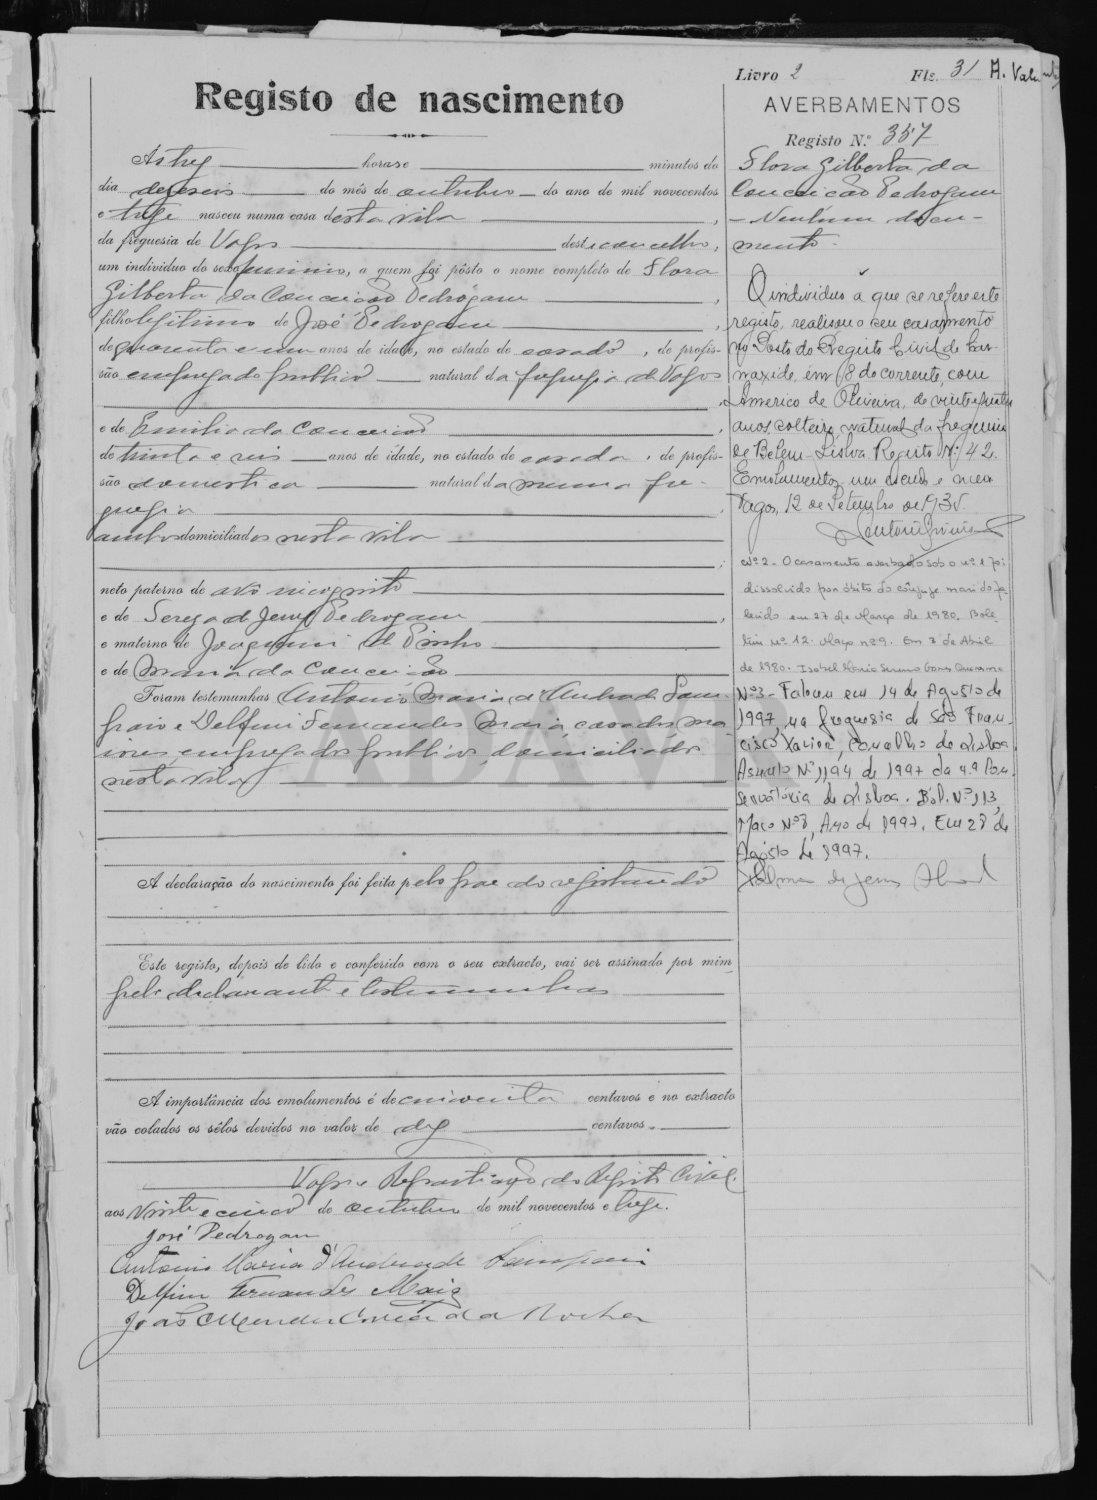 Livro 2 Fls. 31
Registo de nascimento
As trez horas e minutos do
dia dezeseis do mês de outubro do ano de mil novecentos
e treze nasceu numa casa desta vila,
da freguesia de Vagos deste concelho,
um individuo do sexo feminino, a quem foi pôsto o nome completo de Flora
Gilberta da Conceição Pedrogam,
filha legitima de José Pedrogam,
de quarenta e um anos de idade, no estado de casado, de profis-
são empregado publico natural da freguezia de Vagos
,
e de Emilia da Conceição,
de trinta e seis anos de idade, no estado de casada, de profis-
são domestica natural da mesma fre-
guezia,
ambos domiciliados nesta vila
;
neto paterno de avô incognito
e de Tereza de Jesus Pedrogam,
e materno de Joaquim de Pinho
e de Maria da Conceição
Foram testemunhas Antonio Maria d'Andrade Sam-
paio e Delfim Fernandes Maia, casados, ma-
iores, empregados publicos, domiciliados
nesta vila
A declaração do nascimento foi feita pelo pae do registando
Este registo, depois de lido e conferido com o seu extracto, vai ser assinado por mim
pelo declarante e testemunhas
A importância dos emolumentos é de cincoenta centavos e no extracto
vão colados os sêlos devidos no valor de dez centavos.
Vagos e Repartição do Registo Civil.
aos vinte e cinco de outubro de mil novecentos e treze.
José Pedrogam
Antonio Maria d'Andrade Sampaio
Delfim Fernandes Maia
João Mendes Correia da Rocha
AVERBAMENTOS
Registo N.º 357
Flora Gilberta da
Conceição Pedrogam
- Nenhum docu-
mento -
O individuo a que se refere este
registo, realisou o seu casamento
no Posto do Registo Civil de Car-
naxide, em 8 do corrente, com
Americo de Oliveira, de vinte e quatro
anos, solteiro, natural da freguesia
de Belem - Lisboa. Registo Nº 42.
Emolumentos, um escudo e meio
Vagos, 12 de Setembro de 193
Nº 2 - O casamento averbado sob o nº 1 foi
dissolvido por óbito do cônjuge marido fa-
lecido em 27 de Março de 1980. Bole-
tim nº 12. Maço nº 9. Em 3 de Abril
de 1980. Isabel Maria
Nº 3 - Faleceu em 14 de Agosto de
1997, na freguesia de São Fran-
cisco Xavier, Concelho de Lisboa
Assento Nº 1194 de 1997 da 4.ª Con-
servatória de Lisboa. Bol. Nº 113,
Maço Nº 8, Ano de 1997. Em 28 de
Agosto de 1997.
ADAVR